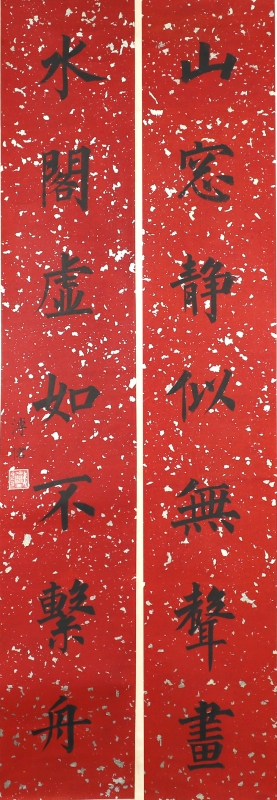 山窓静似無聲畫
水閣虛如不繫舟